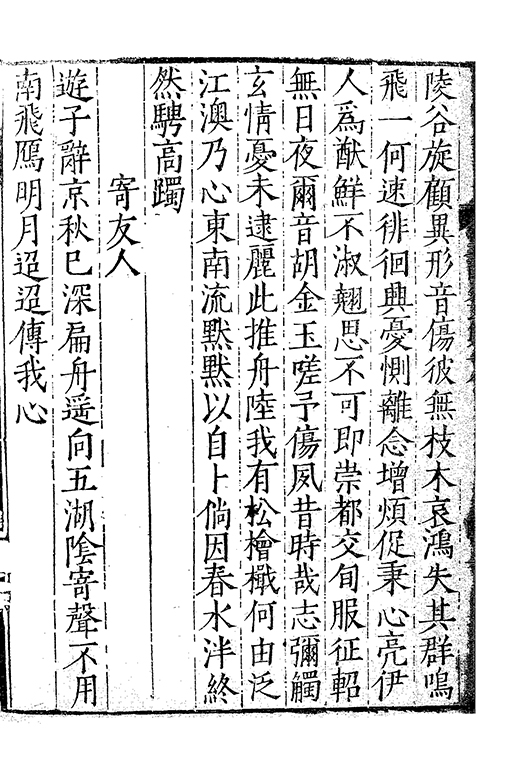 陵谷旋顧異形音傷彼無枝木哀鴻失其群鳴
飛一何速徘徊興憂惻離念增煩促秉心亮伊
人爲猷鮮不淑翹思不可即崇都交旬服征軺
無日夜爾音胡金玉嗟予傷夙昔時哉志彌觸
玄情憂未逮麗此推舟陸我有松檜檝何由泛
江澳乃心東南流默默以自卜倘因春水泮終
然騁高躅
寄友人
遊子辭京秋已深扁舟遥向五湖陰寄聲不用
南飛鴈明月迢迢傳我心